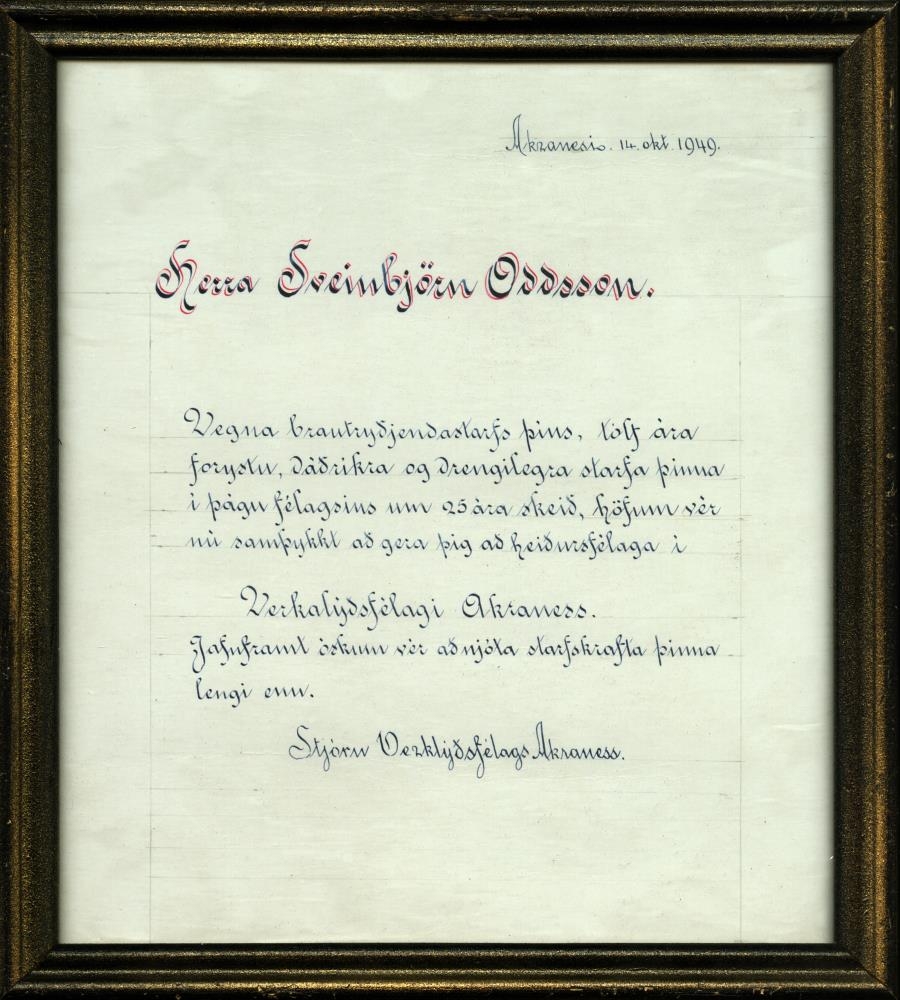 Akranesi. 14. okt. 1949.
Herra Sveinbjörn Oddsson.
Vegna brautryðjendastarfs þíns, tólf ára
forystu, dáðríkra og drengilegra starfa þinna
í þágu félagsins um 25 ára skeið, höfum vér
nú samþykkt að gera þig að heiðursfélaga í
Verkalýðsfélagi Akraness.
Jafnframt óskum vér að njóta starfskrafta þinna
lengi enn.
Stjórn Verklýðsfélags Akraness.